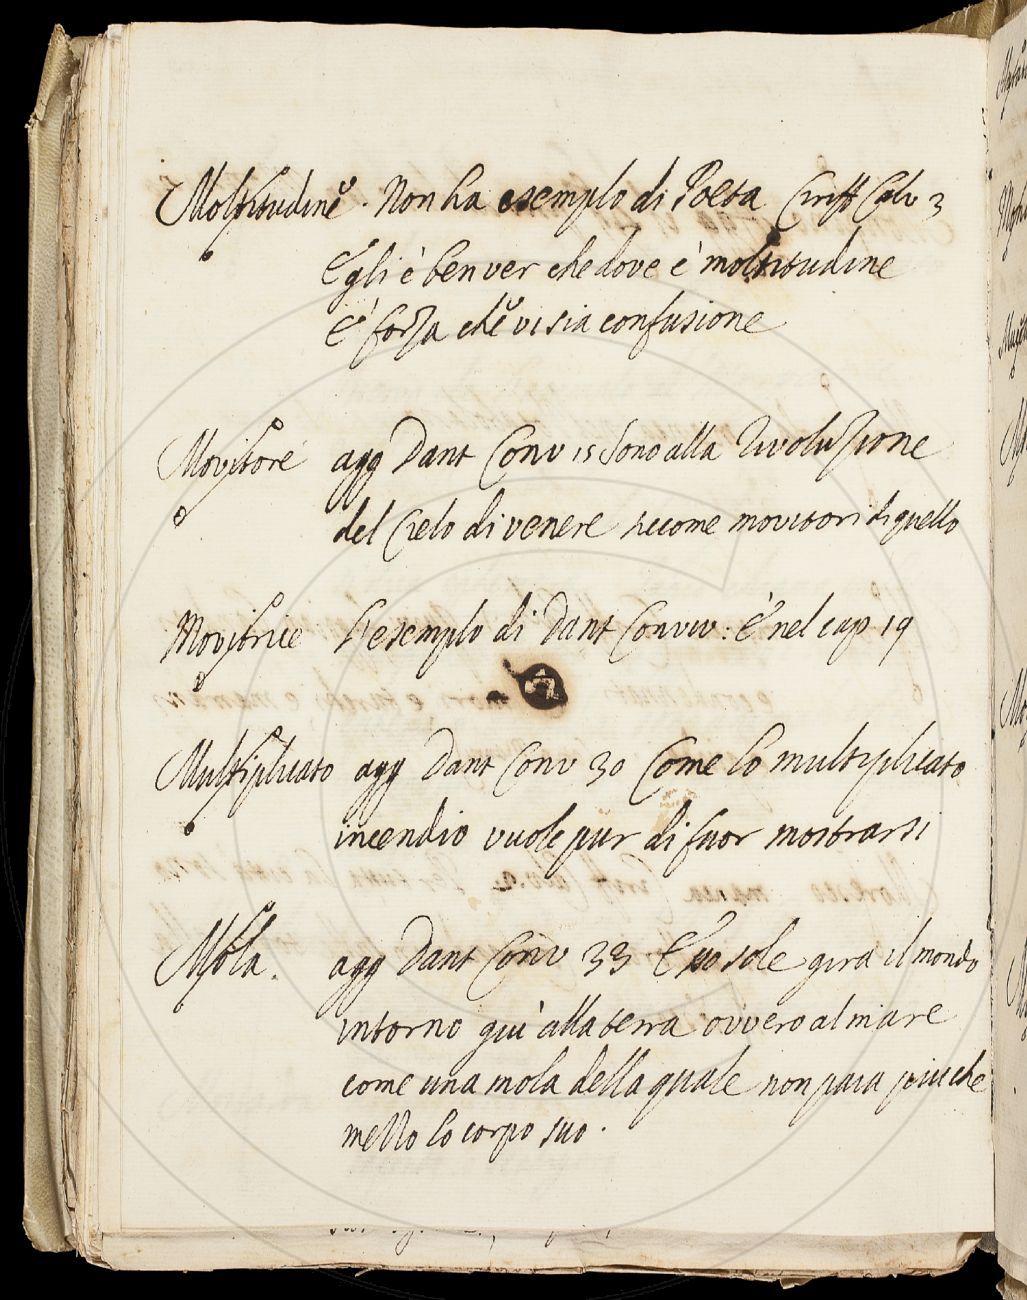 Moltitudine. Non ha esempio di Poeta Ciriff Calv 3
Egli è ben ver che dove è moltitudine
E' forza che vi sia confusione
Movitore agg Dant Conv 15 Sono alla rivoluzione
del Cielo di venere siccome movitori di quello
Movitrice L'esempio di Dant Conviv: È nel cap 19
Multiplicato agg Dant Conv 30 Come lo multiplicato
incendio vuole pur di fuor mostrarsi
Mola. agg Dant Conv 33 E sole gira il mondo
intorno giù alla terra ovvero al mare
come una mola della quale non paia più che
mezzo lo corpo suo.